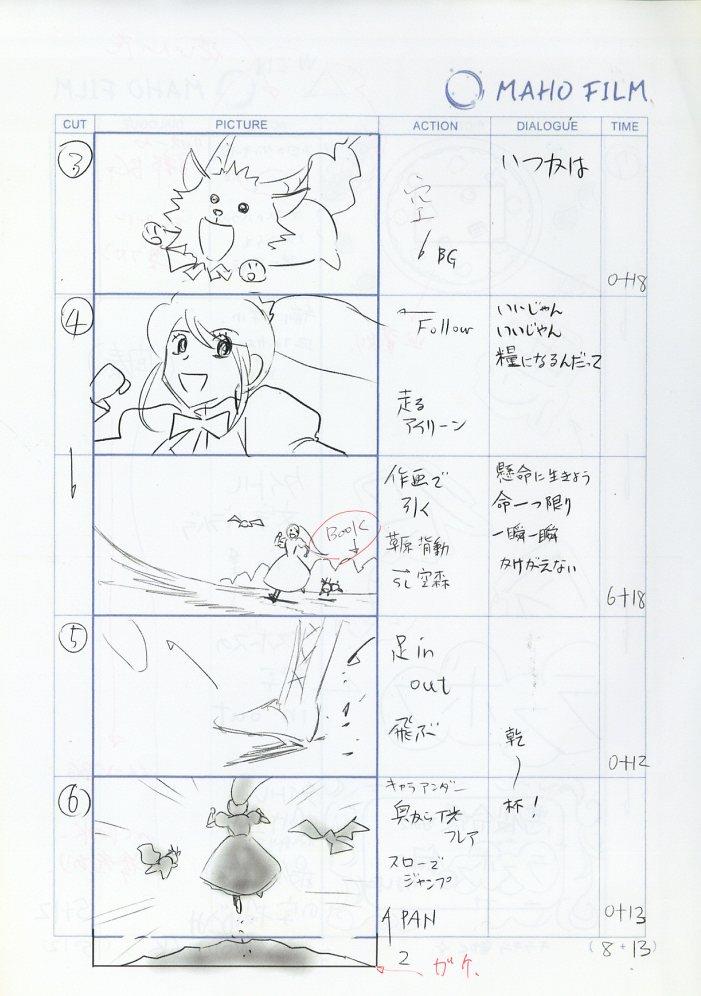 MAHO FILM
CUT PICTURE ACTION DIALOGUE TIME
③
空
BG
いつかは
0+18
④
Follow
走る
アイリーン
いいじゃん
いいじゃん
糧になるんだって
作画で
引く
草原背動
→
SL 空森
Book
懸命に生きよう
命一つ限り
一瞬一瞬
かけがえない
6+18
⑤
足in
out
飛ぶ
0+12
⑥
乾
杯!
キャラアンダー
奥から光
フレア
スローで
ジャンプ
PAN
2
ガケ
0+13
(8+13)